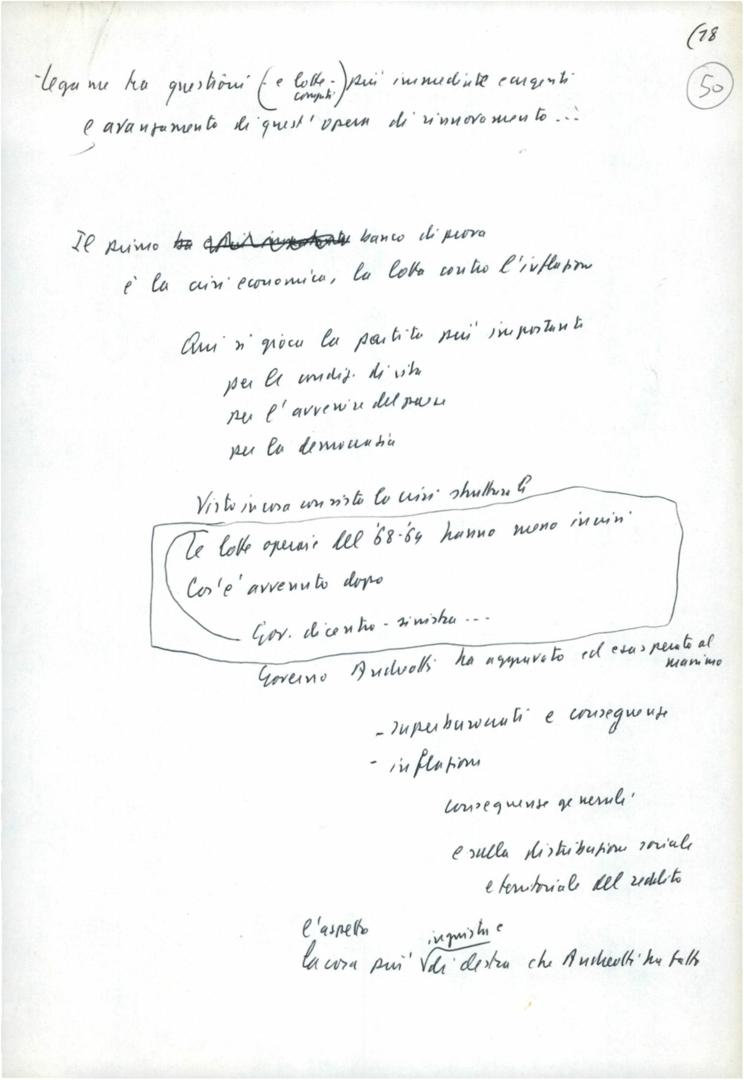 (18
50
-legame tra questioni (- e lotte - compiti) più immediate e urgenti
e avanzamento di quest'opera di rinnovamento...
Il primo banco di prova
è la crisi economica, la lotta contro l'inflazione
Qui si gioca la partita più importante
per le condiz. di vita
per l'avvenire del paese
per la democrazia
Visto in cosa consiste la crisi strutturale
Le lotte operaie del '68-'69 hanno messo in crisi
Cos'è avvenuto dopo
Gov. di centro-sinistra...
Governo Andreotti ha aggravato ed esasperato al massimo
- superburocrati e conseguenze
- inflazione
conseguenze generali
e sulla distribuzione sociale
e territoriale del reddito
l'aspetto
la cosa più ingiusta e di destra che Andreotti ha fatto